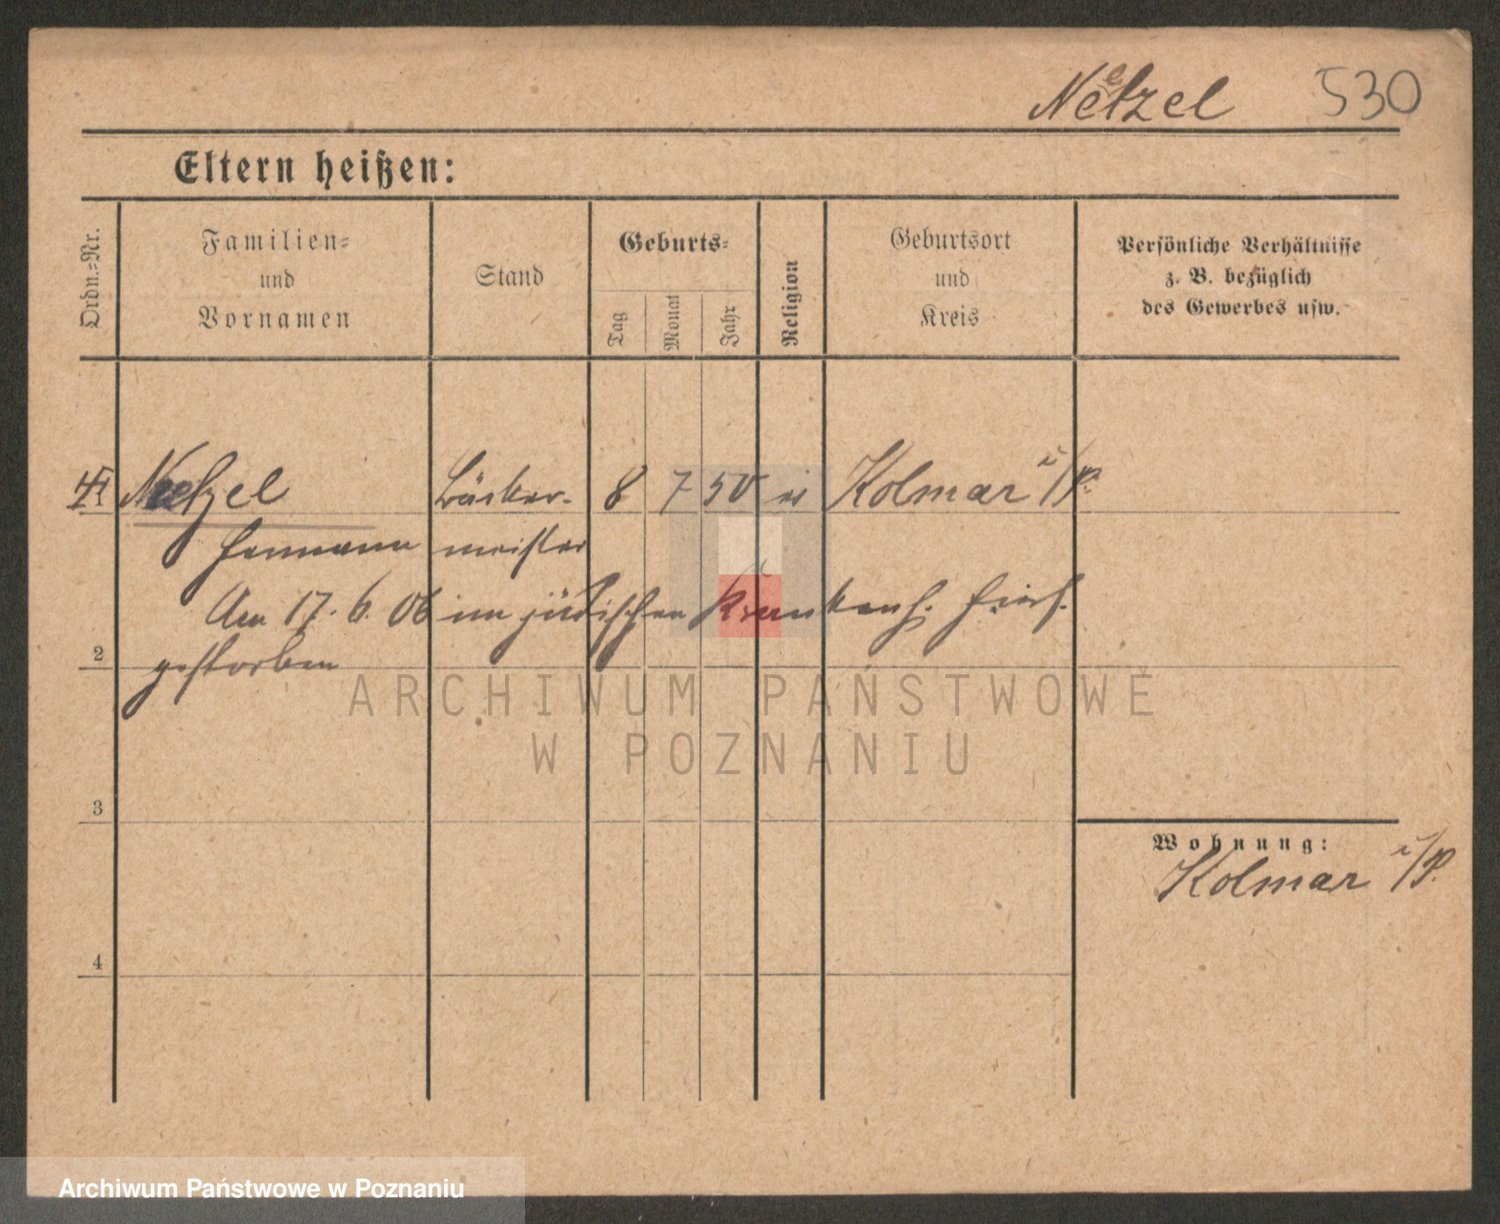 Neetzel 530
Eltern heißen:
Ordn.-Nr.
Familien-
und
Vornamen
Stand
Geburts-
Tag
Monat
Jahr
Religion
Geburtsort
und
Kreis
Persönliche Verhältnisse
z. B. bezüglich
des Gewerbes usw.
Neetzel Bäcker- 8 7 50 Kolmar i/P.
Hermann meister
Am 17. 6. 06 im jüdischen Krankenh. hies.
2
gestorben
ARCHIWUM PAŃSTWOWE
W POZNANIU
3
Wohnung:
Kolmar i/P.
4
Archiwum Państwowe w Poznaniu